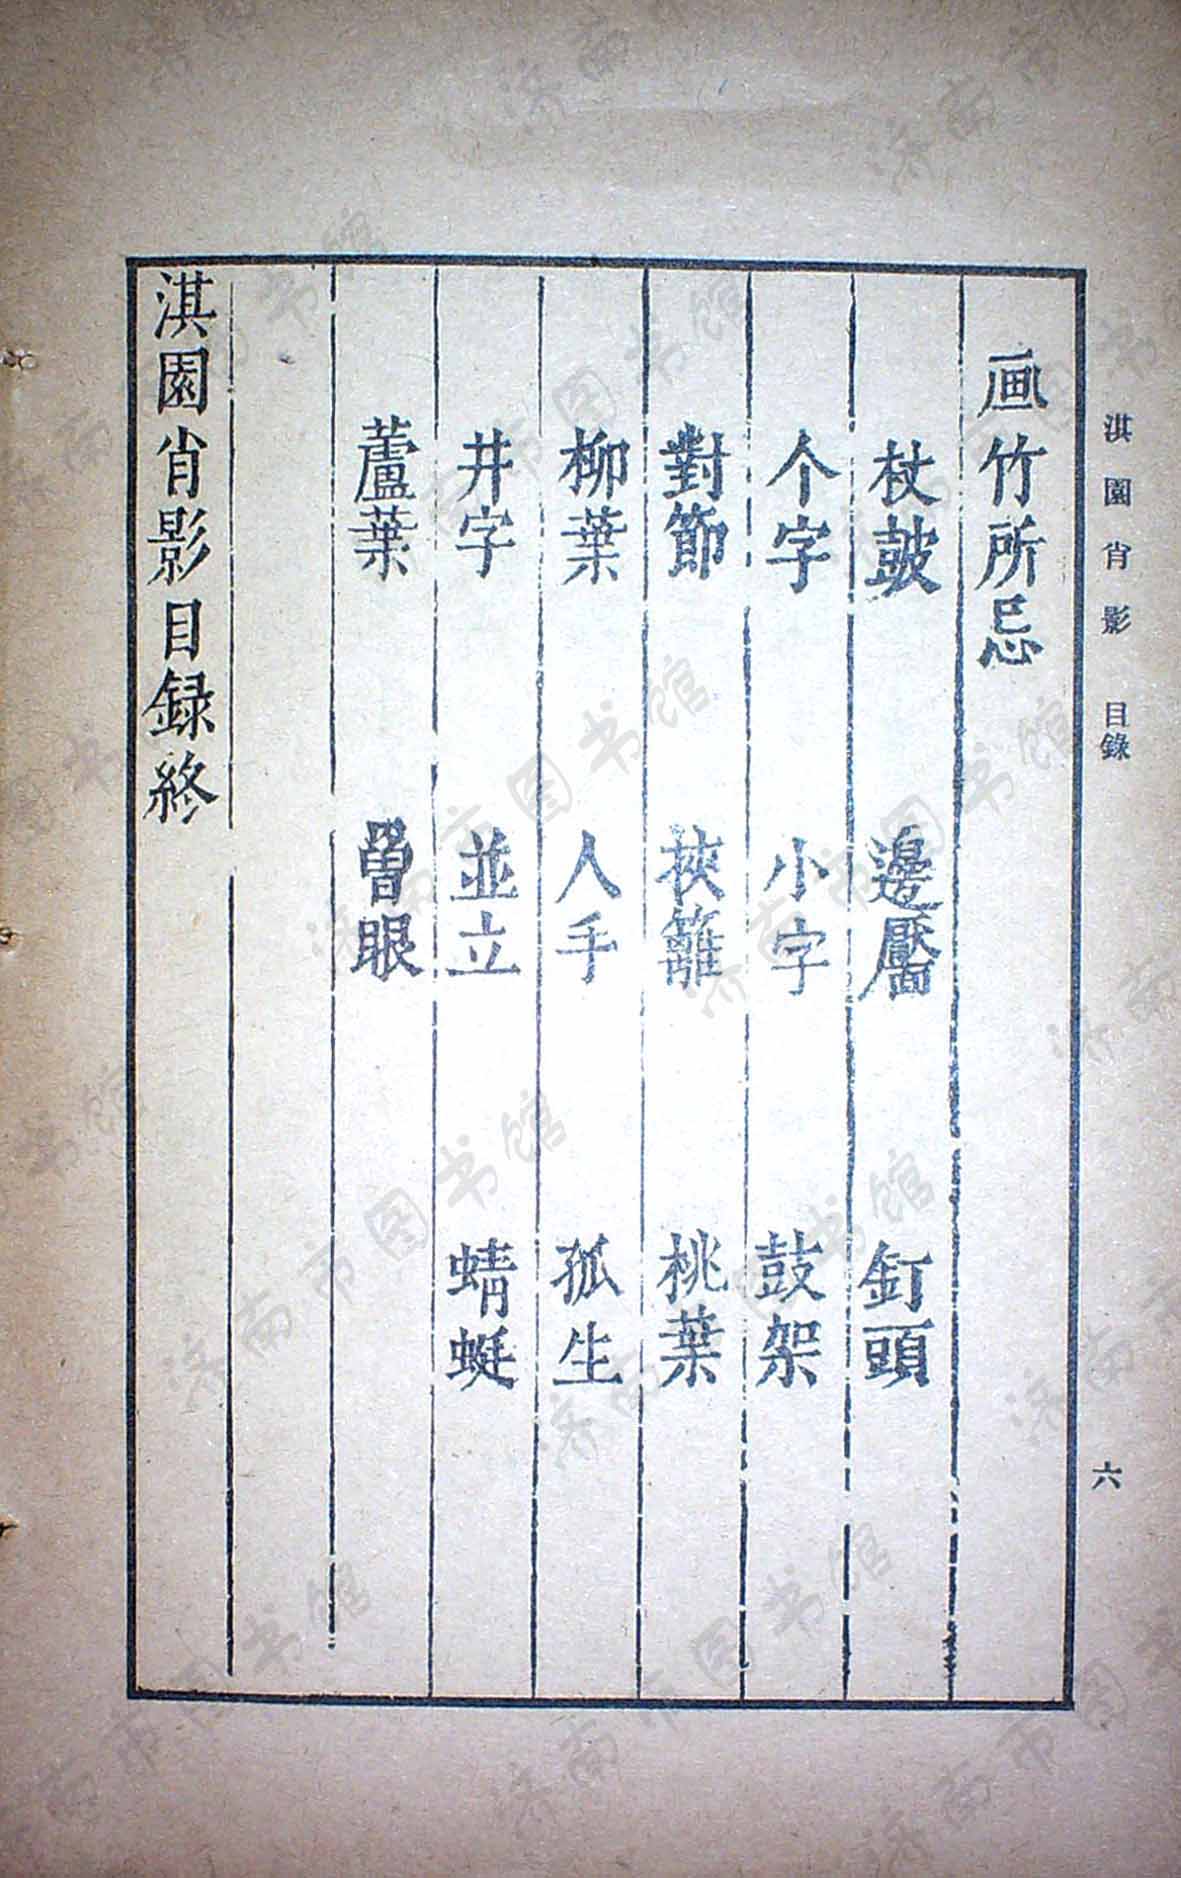 淇園肖影 目錄 六
画竹所忌
杖皷 邊靨 釘頭
个字 小字 鼓架
對節 挾籬 桃葉
柳葉 人手 孤生
井字 並立 蜻蜓
蘆葉 罾眼
淇園肖影目録終
济南市图书馆